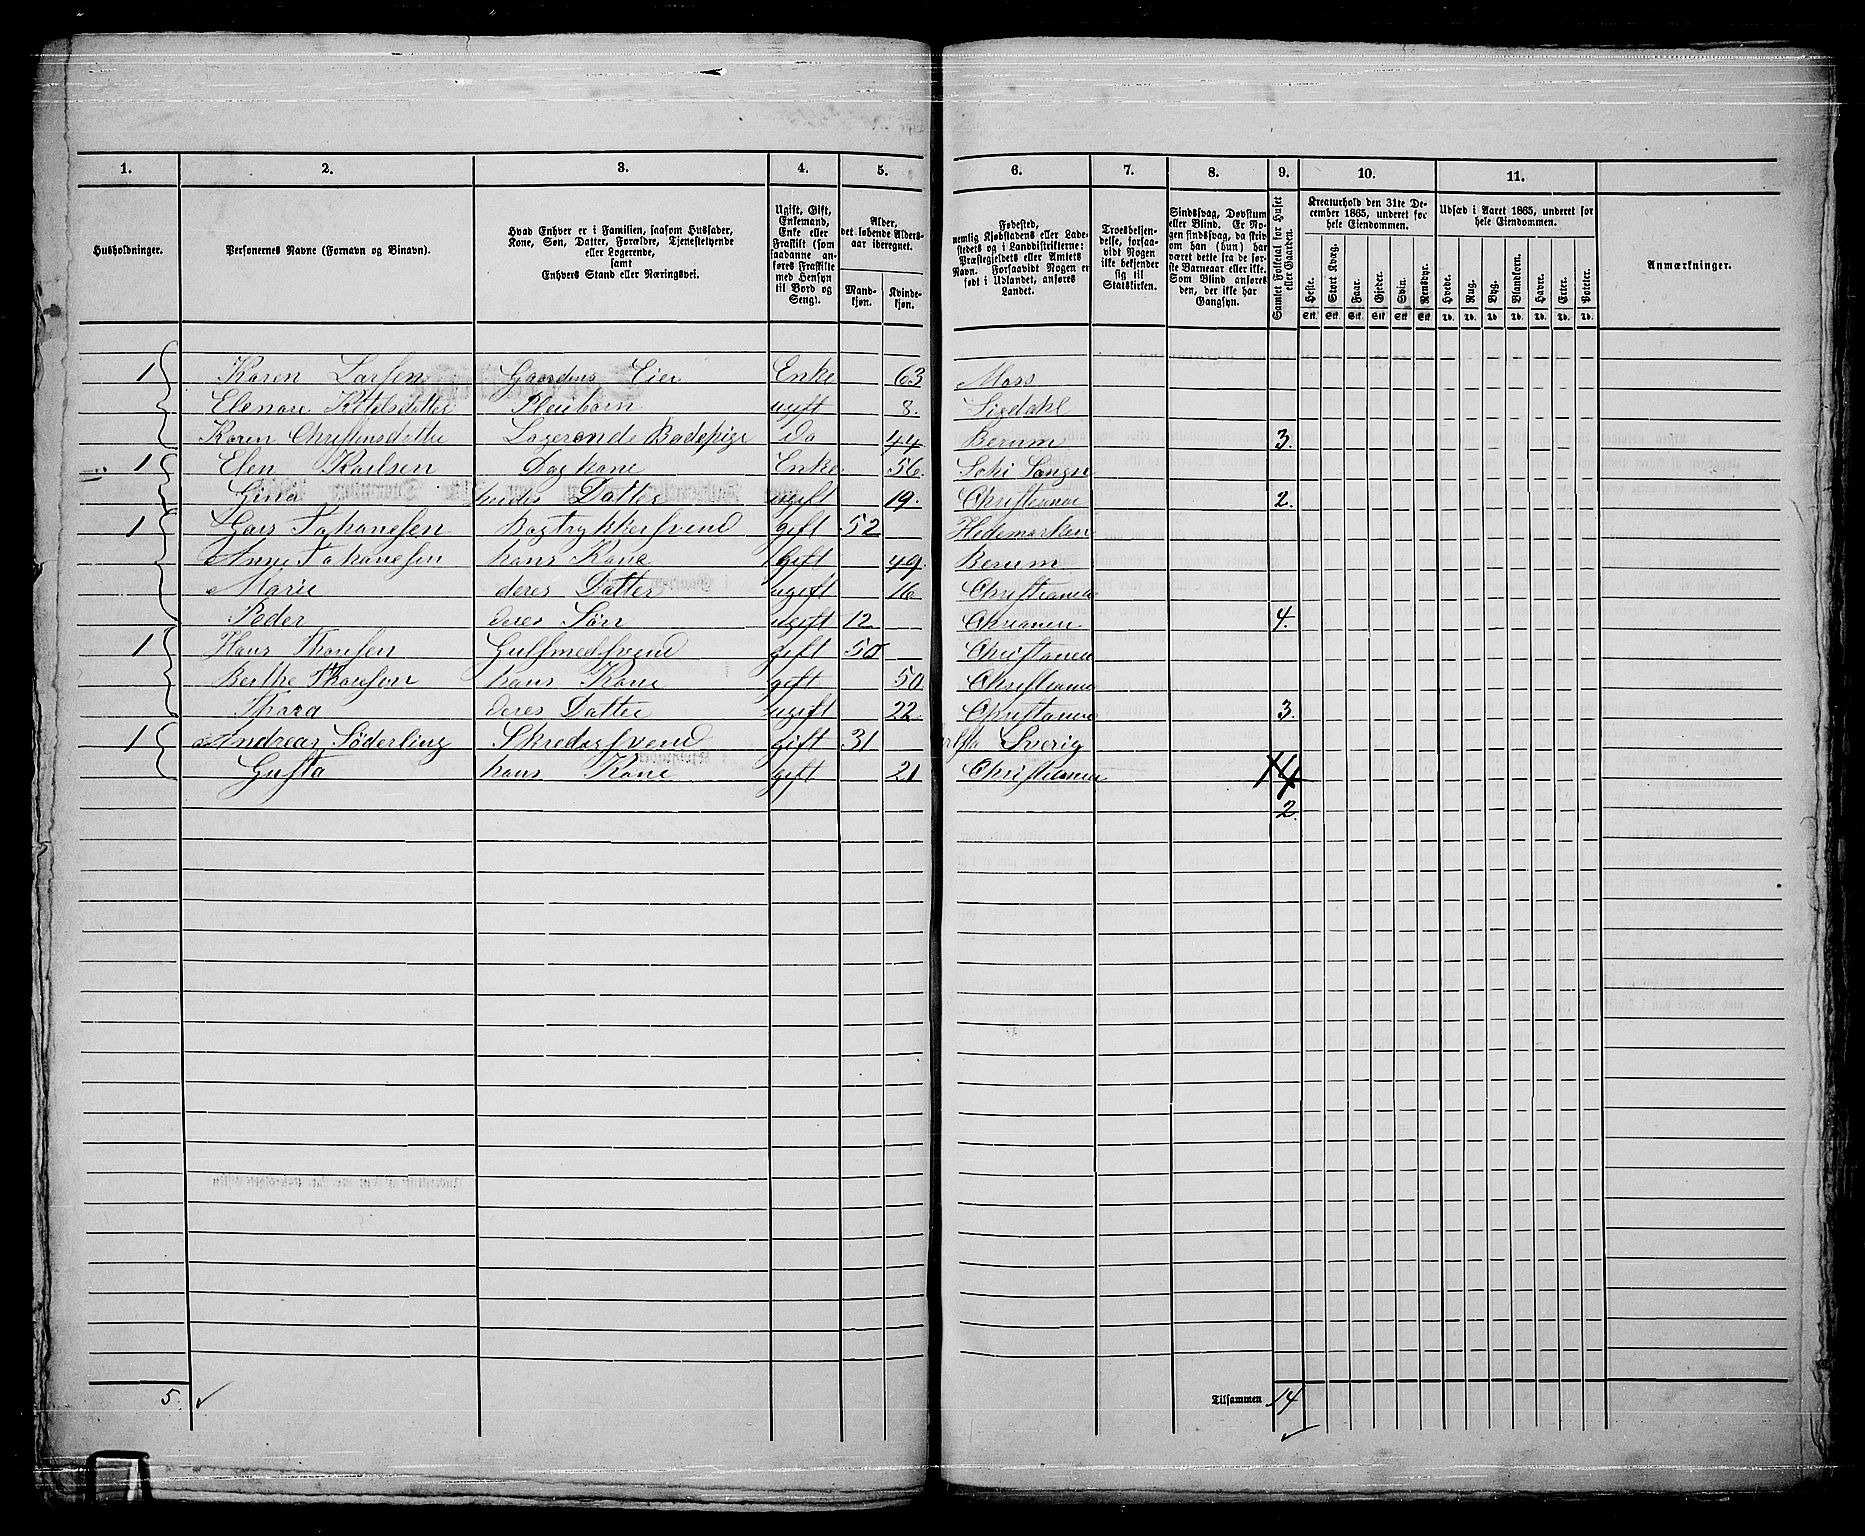 1. 2. 3. 4. 5. 6. 7. 8. 9. 10. 11.
Husholdninger.
Personernes Navne (Fornavn og Binavn).
Hvad Enhver er i Familien, saasom Husfader,
Kone, Søn, Datter, Forældre, Tjenestetyende
eller Logerende,
samt
Enhvers Stand eller Næringsvei.
Ugift, Gift,
Enkemand,
Enke eller
Fraskilt (som
saadanne an-
føres Fraskilte
med Hensyn
til Bord og
Seng).
Alder,
det løbende Alders-
aar iberegnet.
Mand-
kjøn.
Kvinde-
kjøn.
Fødested,
nemlig Kjøbstadens eller Lade-
stedets og i Landdistrikterne:
Præstegjeldets eller Amtets
Navn. Forsaavidt Nogen er
født i Udlandet, anføres
Landet.
Troesbekjen-
delse, forsaa-
vidt Nogen
ikke bekjender
sig til
Statskirken.
Sindssvag, Døvstum
eller Blind. Er No-
gen sindssvag, da skriv
om han (hun) har
været dette fra de før-
ste Barneaar eller ikke.
Som Blind anføres
den, der ikke har
Gangsyn.
Samlet Folketal for Huset
eller Gaarden.
Kreaturhold den 31te De-
cember 1865, underet for
hele Eiendommen.
Heste. Stort Kvæg. Faar. Gjeder. Svin. Rensdyr.
Stk. Stk. Stk. Stk. Stk. Stk.
Udsæd i Aaret 1865, underet for
hele Eiendommen.
Hvede. Rug. Byg. Blandkorn. Havre. Erter. Poteter.
Td. Td. Td. Td. Td. Td. Td.
Anmærkninger.
1 Karen Larsen Gaardens Eier Enke 63 Moss
Elenore Ketelsdatter Pleiebarn ugift 8. Sigdahl
Karen Christensdatter Logerende Badepige do 44 Berum 3.
1 Elen Karlsen Dagkone Enke. 56.
Gina hendes Datter ugift 19. Christiania 2.
1 Johansen Bogtrykkersvend gift 52 Hedemarken
Anne Johanesen hans Kone Gift 49. Berum
Marie deres Datter ugift 16 Christiania
Peder deres Sön ugift 12 4.
1 Hans Thoresen Gulsmedsvend gift 50
Berthe Thoresen hans Kone gift 50 Christiania
Thora deres Datter ugift 22. 3.
1 Andreas Söderling Skredersvend Gift 31 Sverig
Gusta hans Kone gift 21 Christiania 14
2.
5. Tilsammen 14